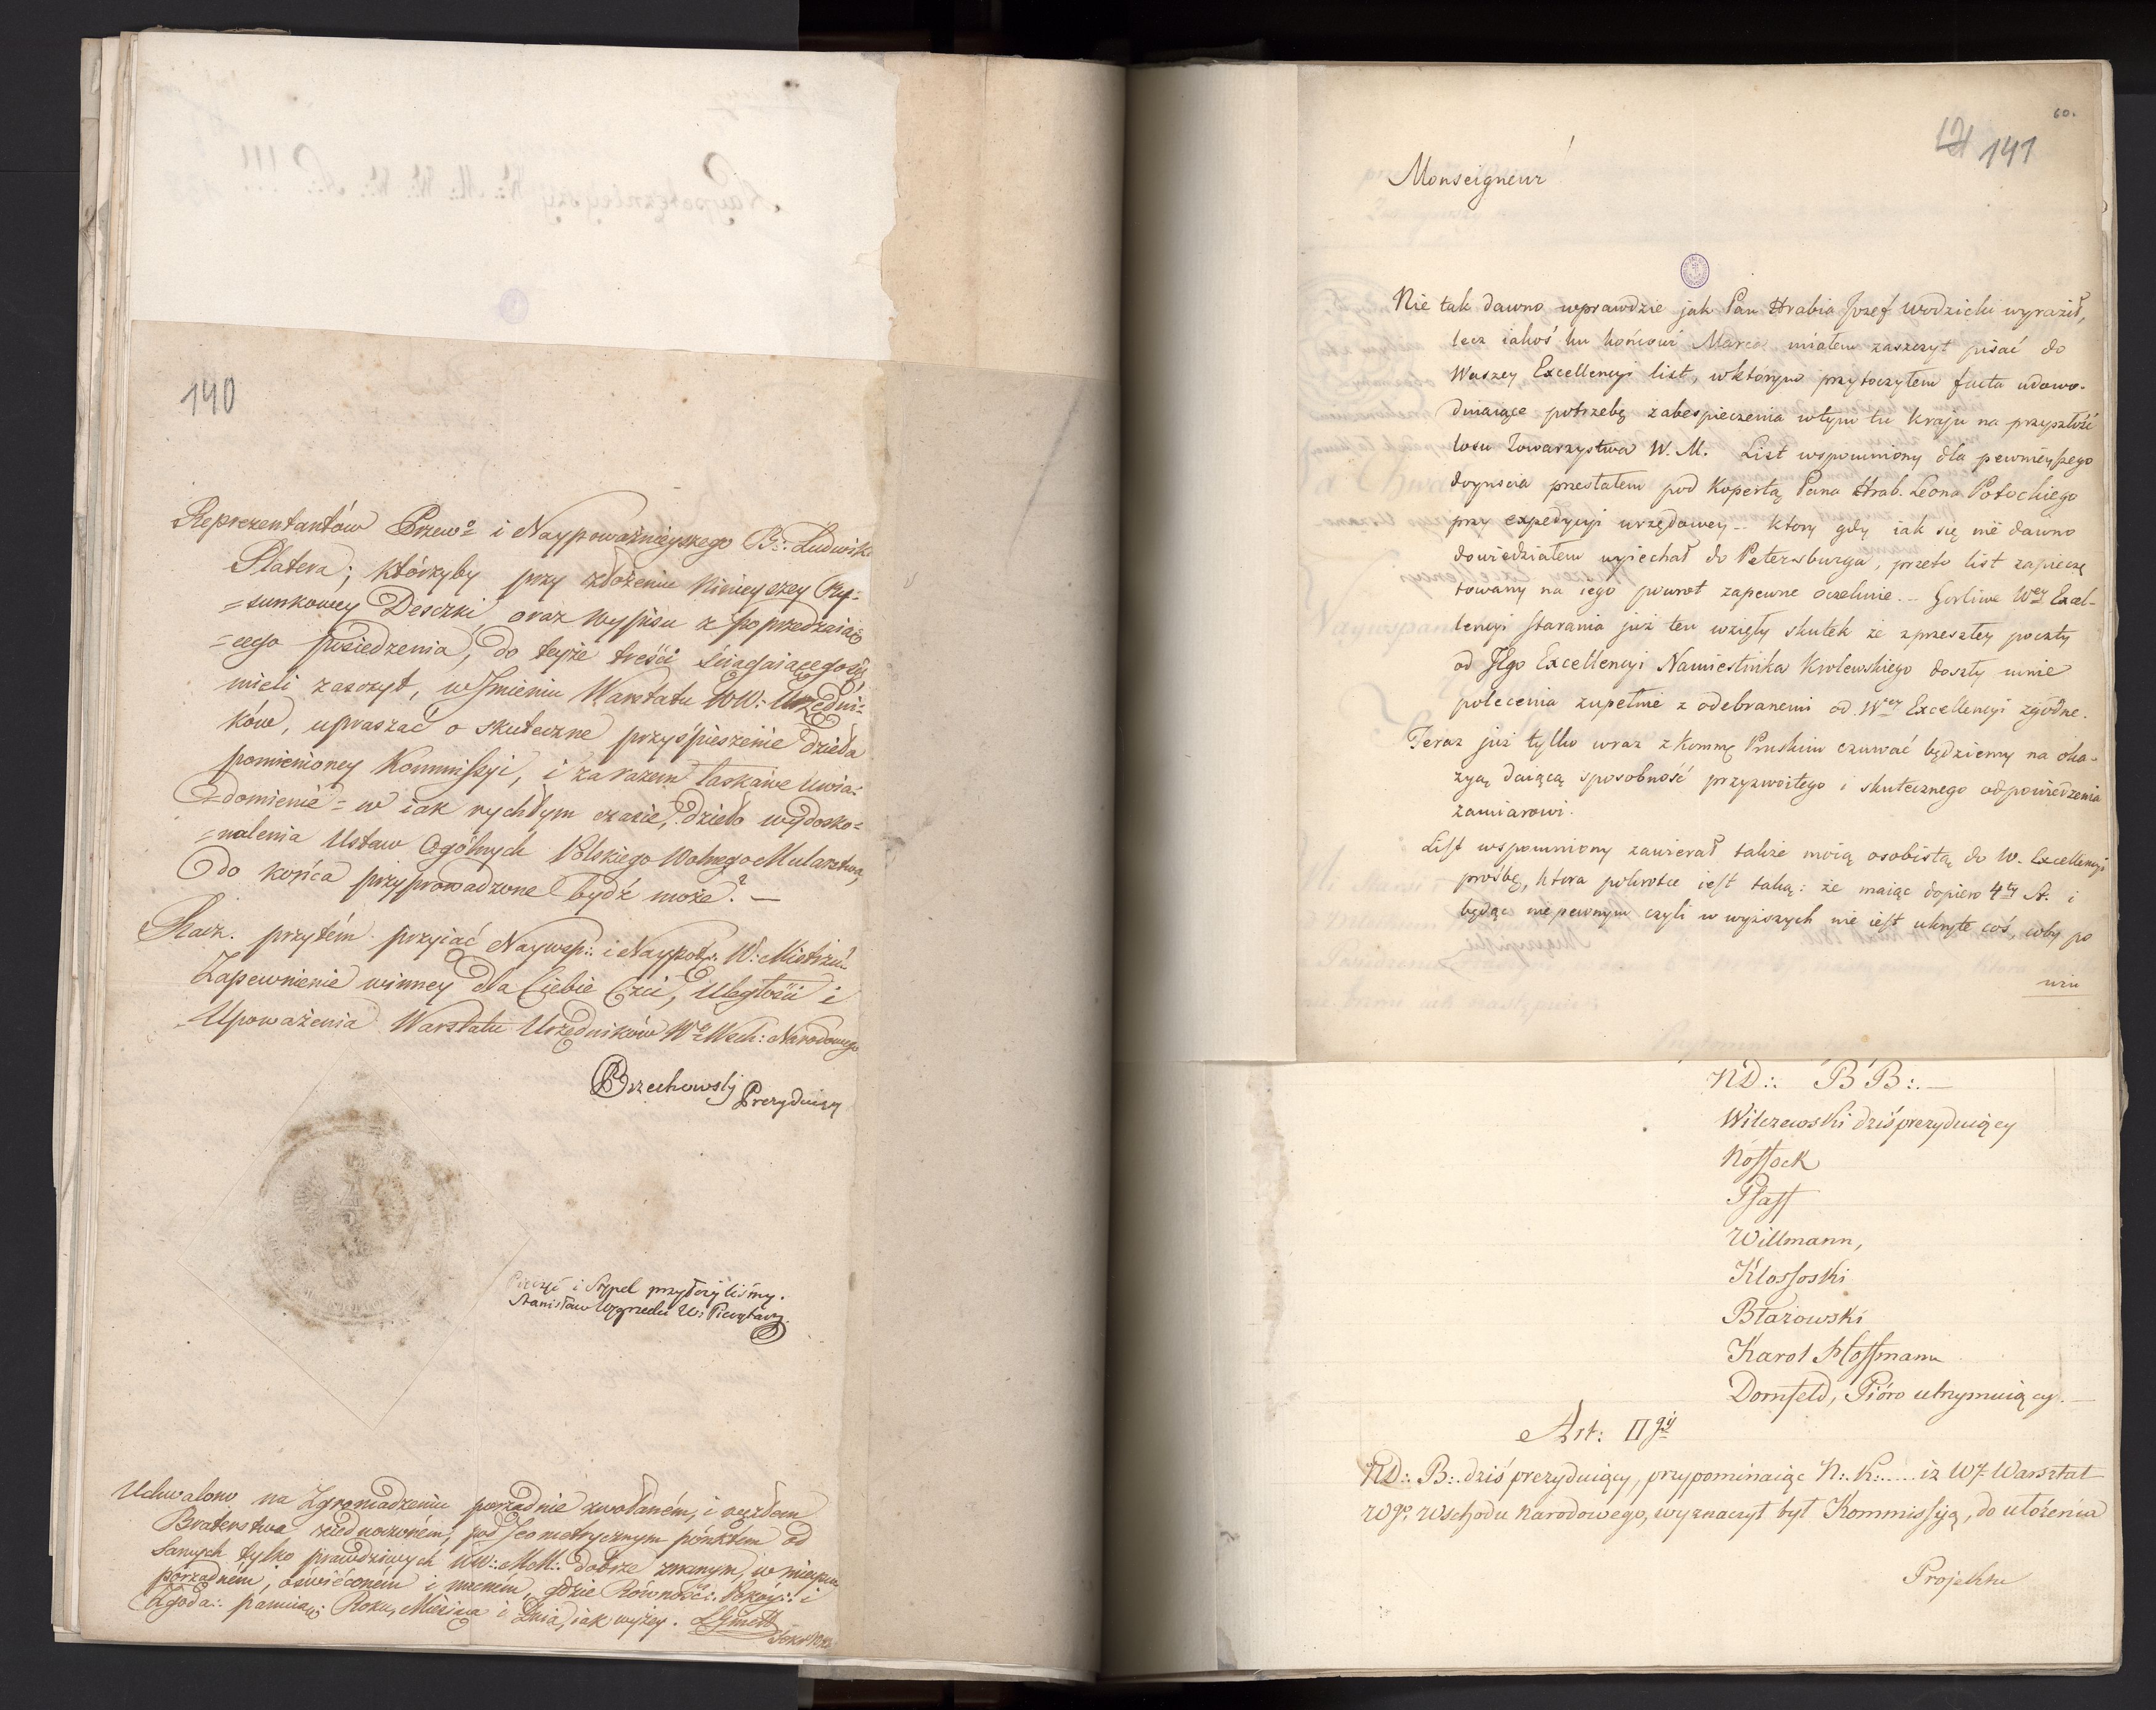 140
Reprezentantów Przewo i Naypoważnieyszego B:. Ludwika
Platera; którzyby przy złożeniu Ninieyszey Ry=
=sunkowey Desczki, oraz wypisu z poprzedzaią=
=cego posiedzenia, do teyże treści ściągaiącego się,
mieli zaszczyt, w Jmieniu Warstatu WW: Urzędni=
ków, upraszać o skuteczne przyśpieszenie Dzieła
pomienioney Kommissyi, i zarazem łaskawe Uwia=
=domienie = w iak rychłym czasie, dzieło wydosko=
=nalenia Ustaw Ogólnych Polskiego Wolnego Mularstwa,
do końca przyprowadzone bydź może? —
Racz. przytém przyiąć Naywsp:. i Naypot:. W: Mistrzu
Zapewnienie winney dla Ciebie Czci, Uległości i
Upoważenia Warstatu Urzędników Wo Wsch: Narodowego
Brzechowski Prezyduiący
Pieczęć i Stępel przyłożyliśmy.
Stanisław Węgrzecki W: Pieczętarz.
Uchwalono na Zgromadzeniu porządnie zwołaném, i węzłem
Braterstwa ziednoczoném, pod Jeometrycznym pónktem od
Samych tylko prawdziwych WW:. MM:. dobrze znanym, w mieyscu
porządném, oświéconém i mocném, gdzie Równość:. Pokóy:. i
Zgoda:. panuią:. Roku, Miesiąca i Dnia, iak wyżey.
60.
121 141
Monseigneur!
Nie tak dawno wprawdzie jak Pan Hrabia Jozef Wodzicki wyraził,
lecz iakoś ku końcowi Marca miałem zaszczyt pisać do
Waszey Excellencyi list, w ktorym przytoczyłem facta udowo-
dniaiące potrzebę zabespieczenia w tym tu kraju na przyszłość
losu Towarzystwa W. M. List wspomniony dla pewnieyszego
doyścia przesłałem pod kopertą Pana Hrab. Leona Potockiego
przy expedycyi urzędowey -- ktory gdy iak się nie dawno
dowiedziałem wyiechał do Petersburga, przeto list zapieczę
towany na iego powrot zapewne oczekuie. -- Gorliwe Wey Excel-
lencyi starania już ten wzięły skutek że z przeszłey poczty
od JJgo Excellencyi Namiestnika Krolewskiego doszły mnie
polecenia zupełnie z odebranemi od Wey Excellencyi zgodne.
Teraz już tylko wraz z Kommę Pruskim czuwać będziemy na oka-
zyą daiącą sposobność przyzwoitego i skutecznego odpowiedzenia
zamiarowi.
List wspomniony zawierał także moią osobistą do W. Excellencyi
prośbę, ktora pokrotce iest taką: że maiąc dopiero 4ty St. i
będąc niepewnym czyli w wyższych nie iest ukryte coś, coby po
win
ND:. BB:. —
Wilczewski dziś prezyduiący
Kossock
Pfaff
Willmann,
Klossoski
Błażowski
Karol Hoffmann
Dornfeld, Pióro utrzymuiący. —
Art: IIgi
ND:. B:. dziś prezyduiący, przypominaiąc N:. K:..... iż Wy. Warsztat
Wgo. Wschodu Narodowego, wyznaczył był Kommissyią, do ułożenia
Projektu